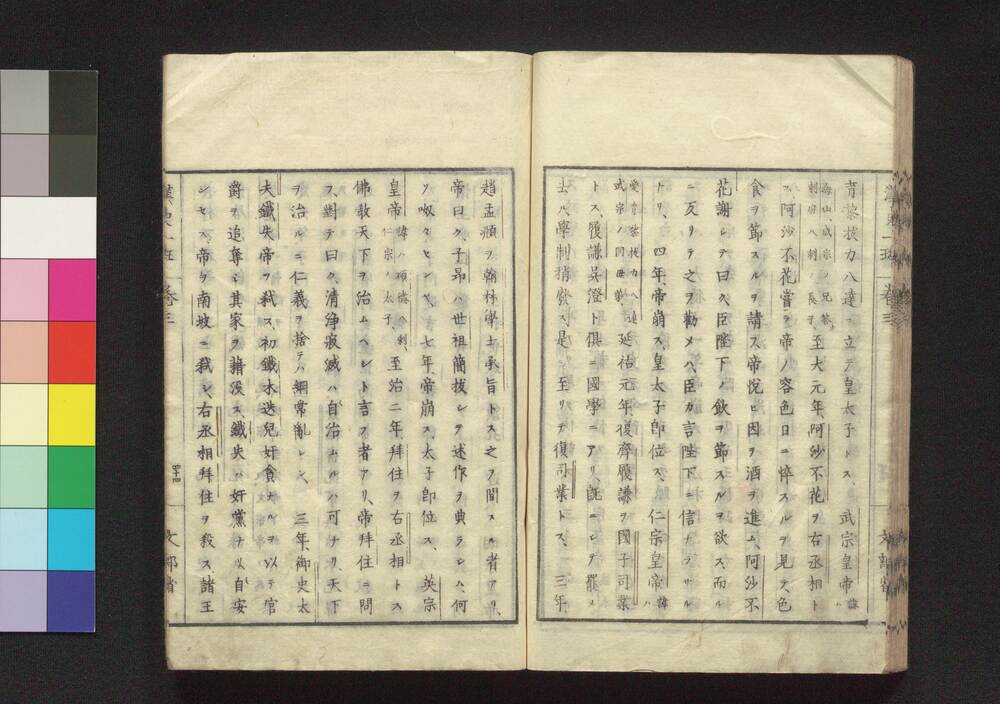 育黎拔力八達ヲ立テ皇太子トス、武宗皇帝諱ハ
海山、成宗ノ兄答
剌麻八剌ノ長子、至大元年、阿沙不花ヲ右丞相ト
ス、阿沙不花嘗テ帝ノ容色日ニ悴スルヲ見テ、色
食ヲ節スルヲ請フ、帝悦ヒ因テ酒ヲ進ム、阿沙不
花謝シテ曰ク、臣陛下ノ飲ヲ節スルヲ欲ス、而ルニ
反リテ之ヲ勸メハ、臣カ言陛下ニ信ナラサル
トリ、四年、帝崩ス、皇太子即位ス、仁宗皇帝諱ハ
愛育黎拔力八達
武宗ノ同母弟、延祐元年、復齊履謙ヲ國子司業
トス、履謙呉澄ト倶ニ國學ニアリ、既ニシテ罷メ
去ル、學制稍廢ス、是ニ至リテ復司業トス、三年、
趙孟頫ヲ翰林學士承旨トス、之ヲ間スル者アリ、
帝曰ク、子昂ハ世祖簡拔シテ述作ヲ典ラシム、何
ソ呶々センヤ、七年帝崩ス、太子即位ス、英宗
皇帝諱ハ碩德八剌、
仁宗ノ太子、至治二年、拜住ヲ右丞相トス
佛教天下ヲ治ムヘシト言フ者アリ、帝拜住ニ問
フ、對テ曰ク、清浄寂滅ハ自治ムルハ可ナリ、天下
ヲ治ルニ仁義ヲ捨テハ綱常亂レン、三年、御史大
夫鐵失帝ヲ弑ス、初鐵木迭兒奸貪ナルヲ以テ官
爵ヲ追奪シ、其家ヲ籍没ス、鐵失ハ奸黨ナリ以自安
シセス、帝ヲ南坡ニ弑シ、右丞相拜住ヲ殺ス、諸王
漢史一班 巻三
四十四
文部省